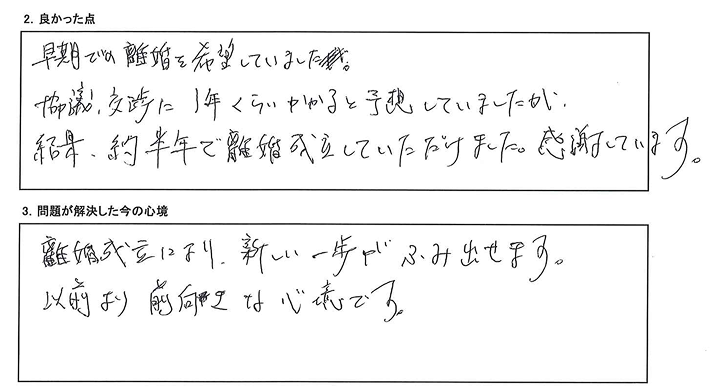 2. 良かった点
早期での離婚を希望していました。
協議、交渉に1年くらいかかると予想していましたが、
結果、約半年で離婚成立していただけました。感謝しています。
3. 問題が解決した今の心境
離婚成立により、新しい一歩がふみ出せます。
以前より前向きな心境です。